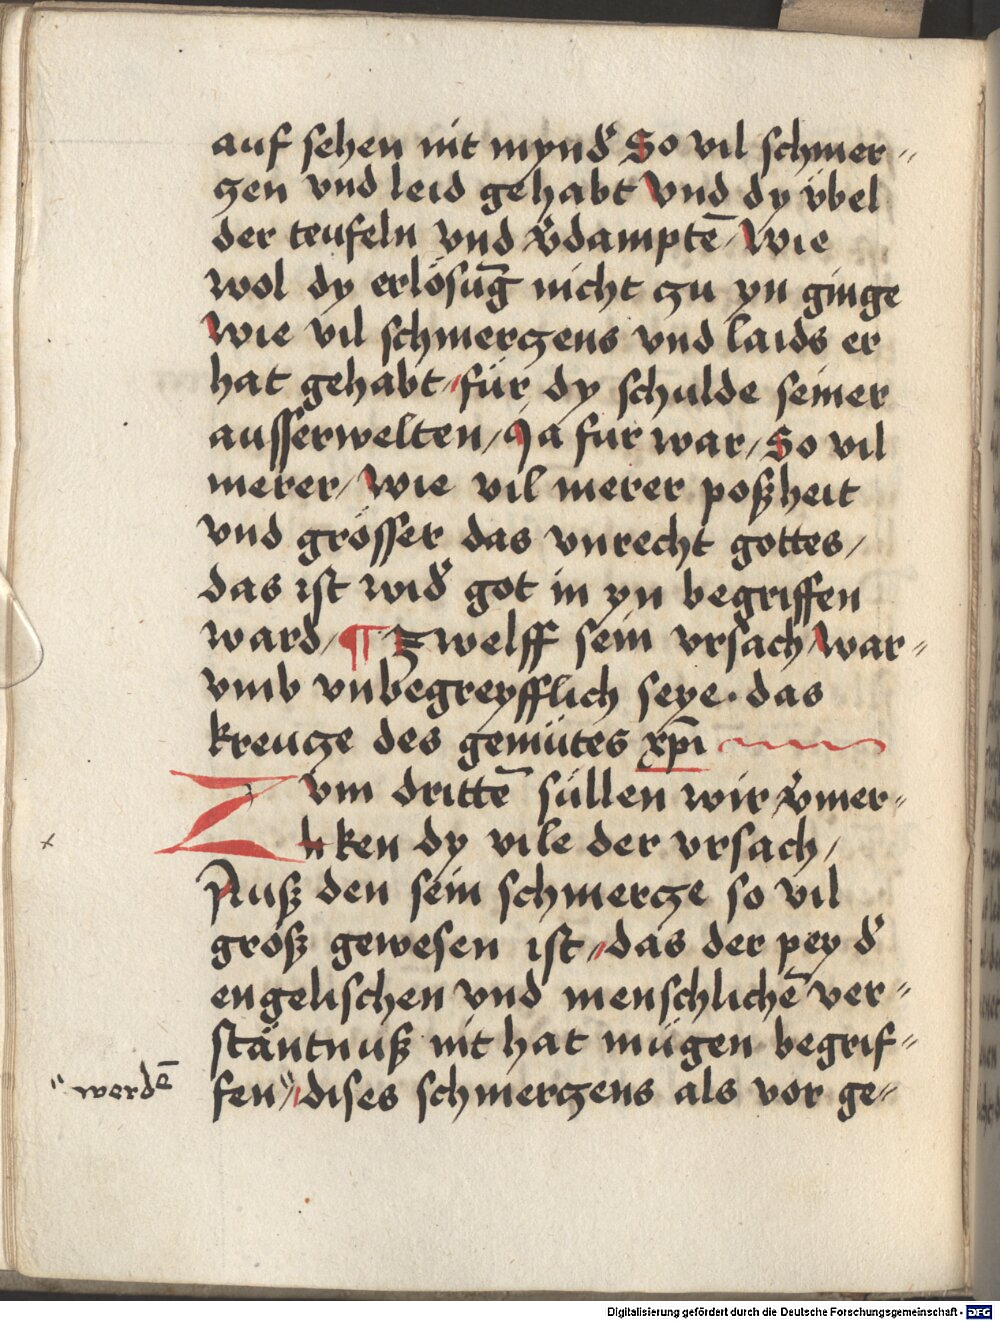 auf sehen nit mynd̕ So vil schmer-
czen vnd leid gehabt Vnd dy v̈bel
der teufeln vnd v̕damptē / Wie
wol dy erlösūg nicht zu yn ginge
Wie vil schmerczens vnd laids er
hat gehabt / für dy schulde seiner
ausserwelten / Ja fur war / So vil
merer / Wie vil merer poßheit
vnd grösser das vnrecht gottes /
das ist wid̕ got in yn begriffen
ward / ¶ Zwelff sein vrsach / War-
vmb vnbegreyfflich seye · das
kreucze des gemütes xp̄i
Zvm drittē süllen wir v̕mer-
ken dy vile der vrsach /
Auß den sein schmercze so vil
groß gewesen ist / das der pey d̕
engelischen vnd menschlichē ver-
stäntnuß nit hat mügen begrif-
fen" / dises schmerczens als vor ge-
" werdē
Digitalisierung gefördert durch die Deutsche Forschungsgemeinschaft - DFG